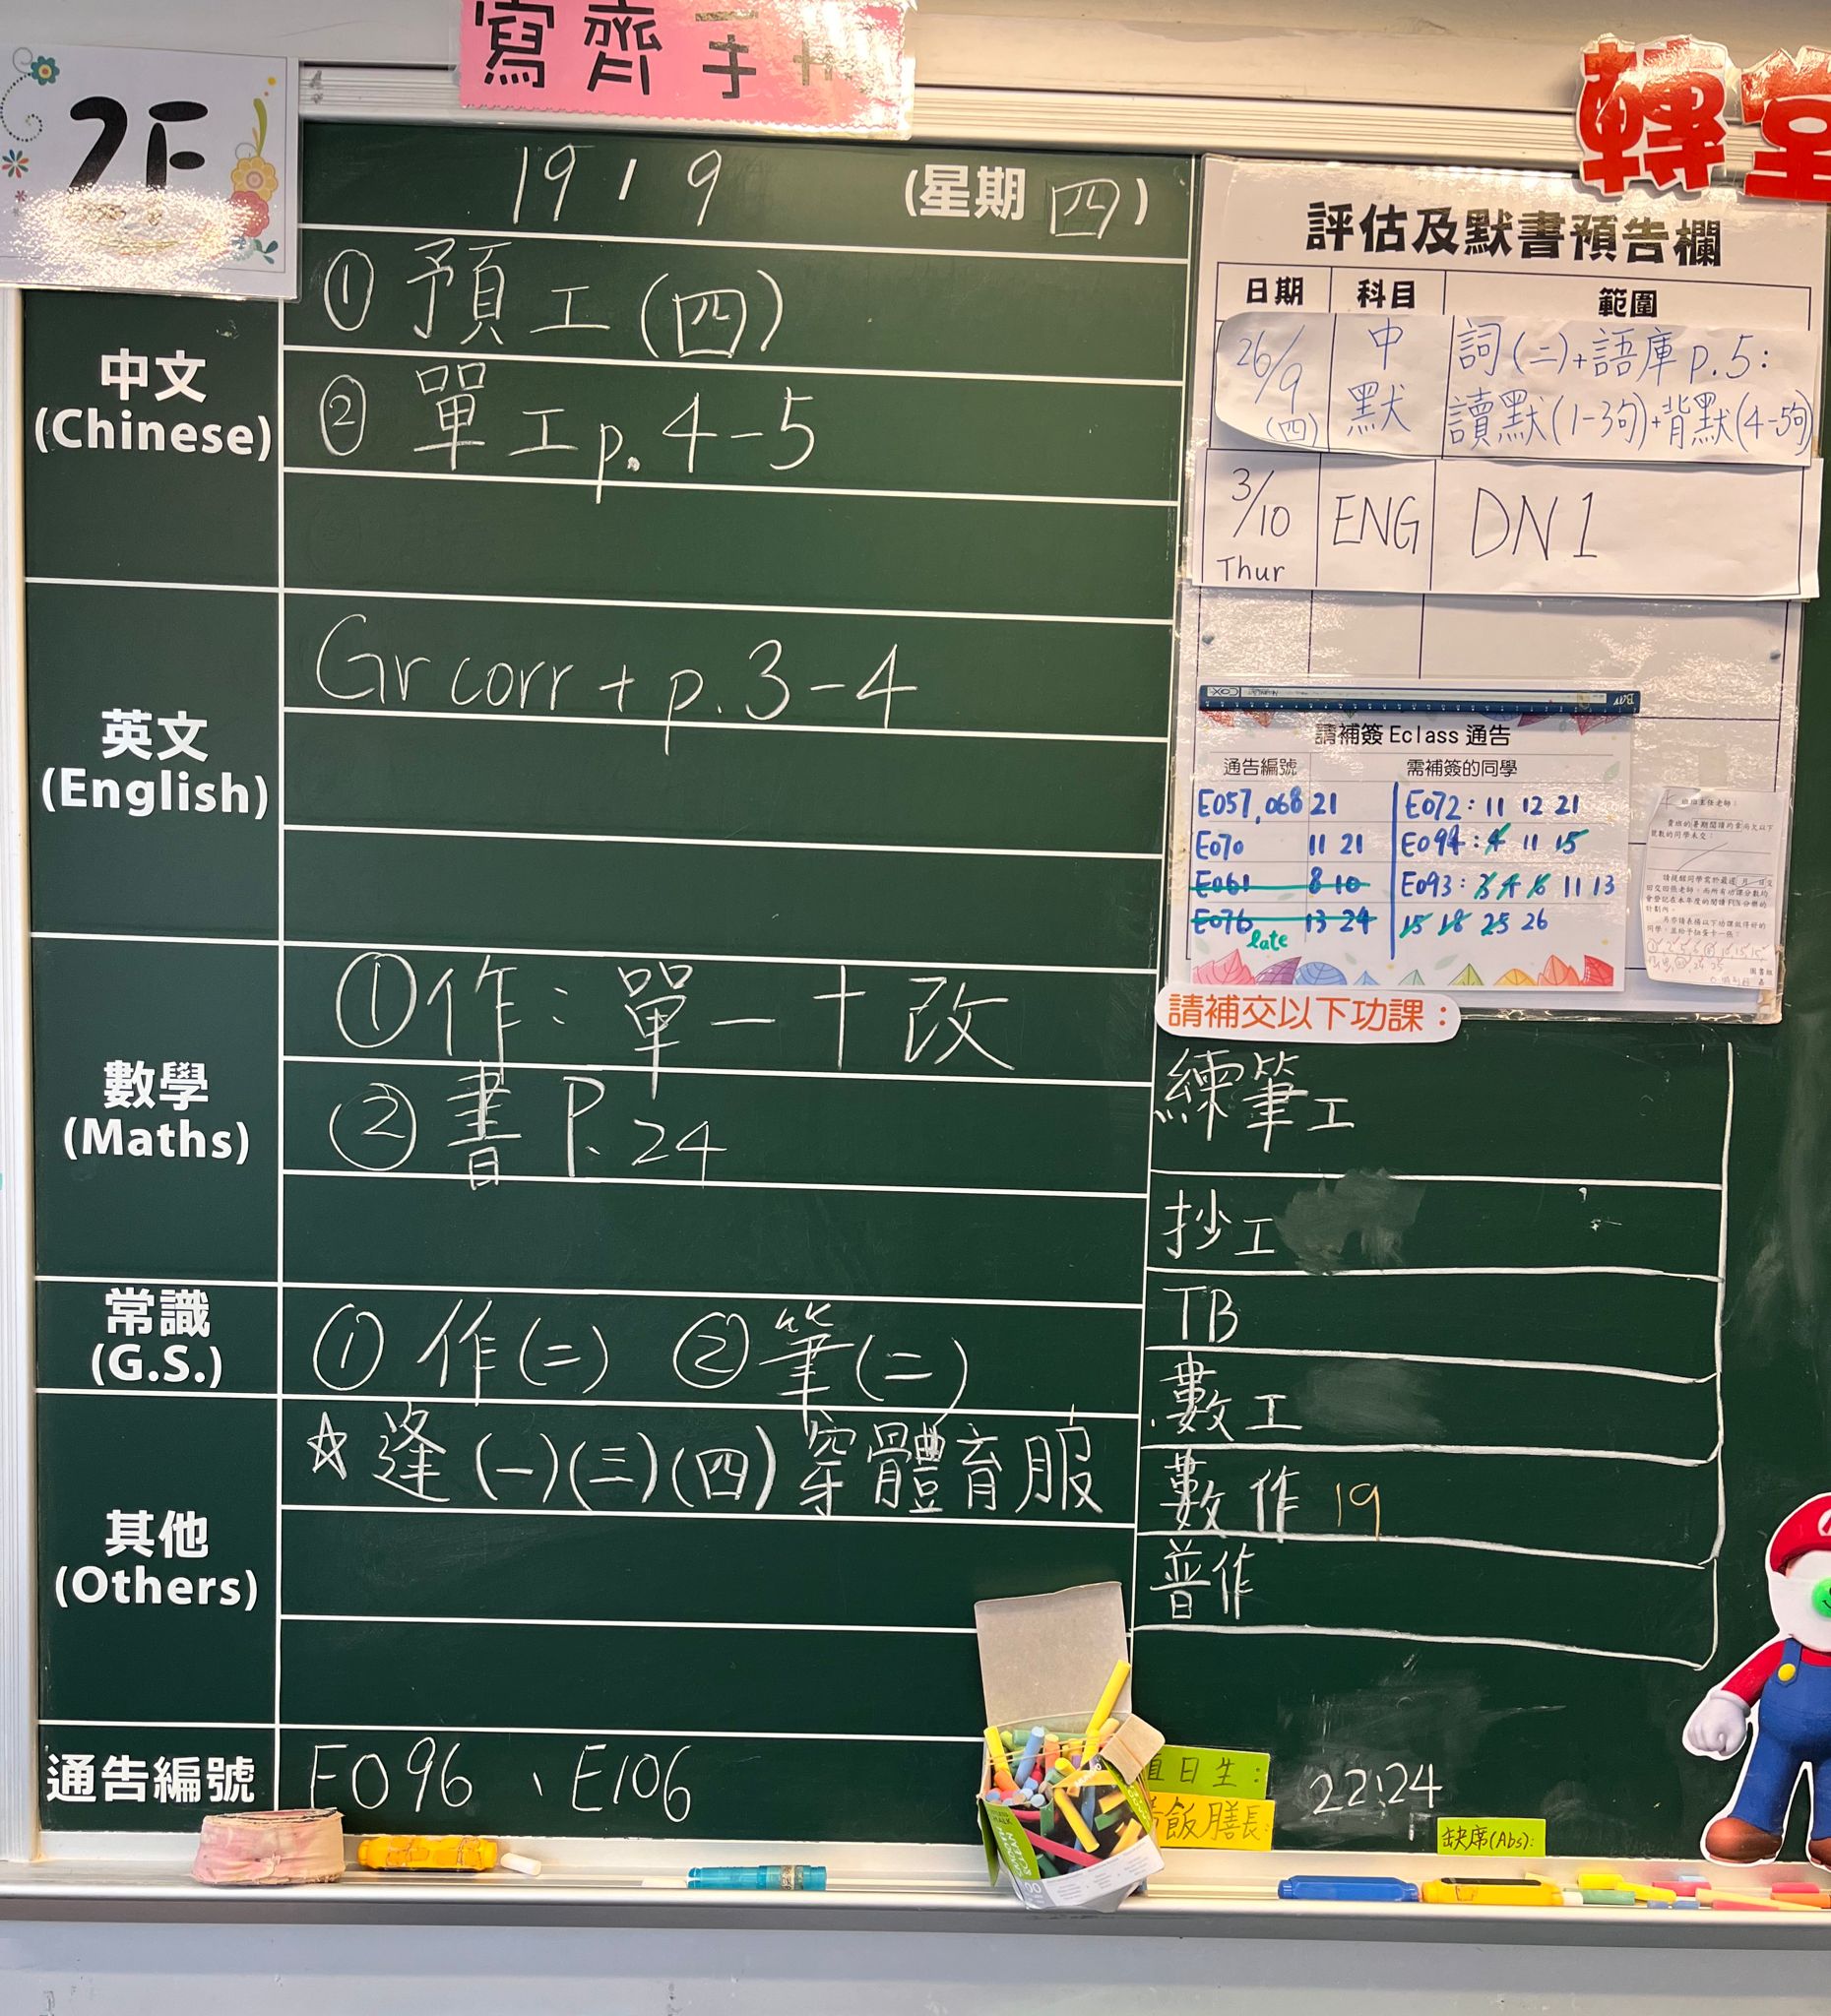 寫齊手
2F
轉堂
19 / 9 (星期四)
中文
(Chinese)
① 預工(四)
② 單工p.4-5
英文
(English)
Gr corr + p.3-4
數學
(Maths)
① 作：單一＋改
② 書P.24
常識
(G.S.)
① 作(二) ② 筆(二)
其他
(Others)
☆逢(一)(三)(四)穿體育服
通告編號
E096、E106
評估及默書預告欄
日期 科目 範圍
26/9 (四) 中默 詞(二)+語庫p.5:
讀默(1-3句)+背默(4-5句)
3/10 Thur ENG DN 1
請補簽 Eclass 通告
通告編號 需補簽的同學
E057,068 21 E072: 11 12 21
E070 11 21 E094: 4 11 15
E061 8 10 E093: 3 4 6 11 13
E076 13 24 15 18 25 26
late
請補交以下功課：
練筆工
抄工
TB
數工
數作 19
普作
日生：
飯膳長：
22:24
缺席(Abs):